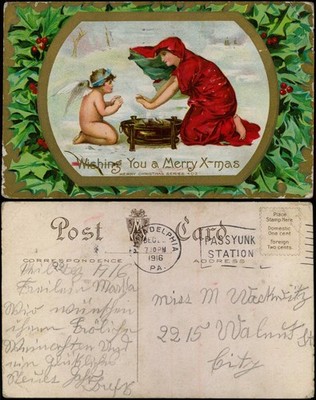 Wishing You a Merry X-mas
MERRY CHRISTMAS SERIES
Post Card
CORRESPONDENCE
ADDRESS
PHILADELPHIA
DEC
7:30PM
1916
PA.
PASSYUNK
STATION
Place
Stamp Here
Domestic
One cent
Foreign
two cents
1916
Fräulein Martha
Wir wünschen
ihnen Fröliche
Weinachten Und
ein glükliche
Neues
Miss M
2215 Walnut St
City